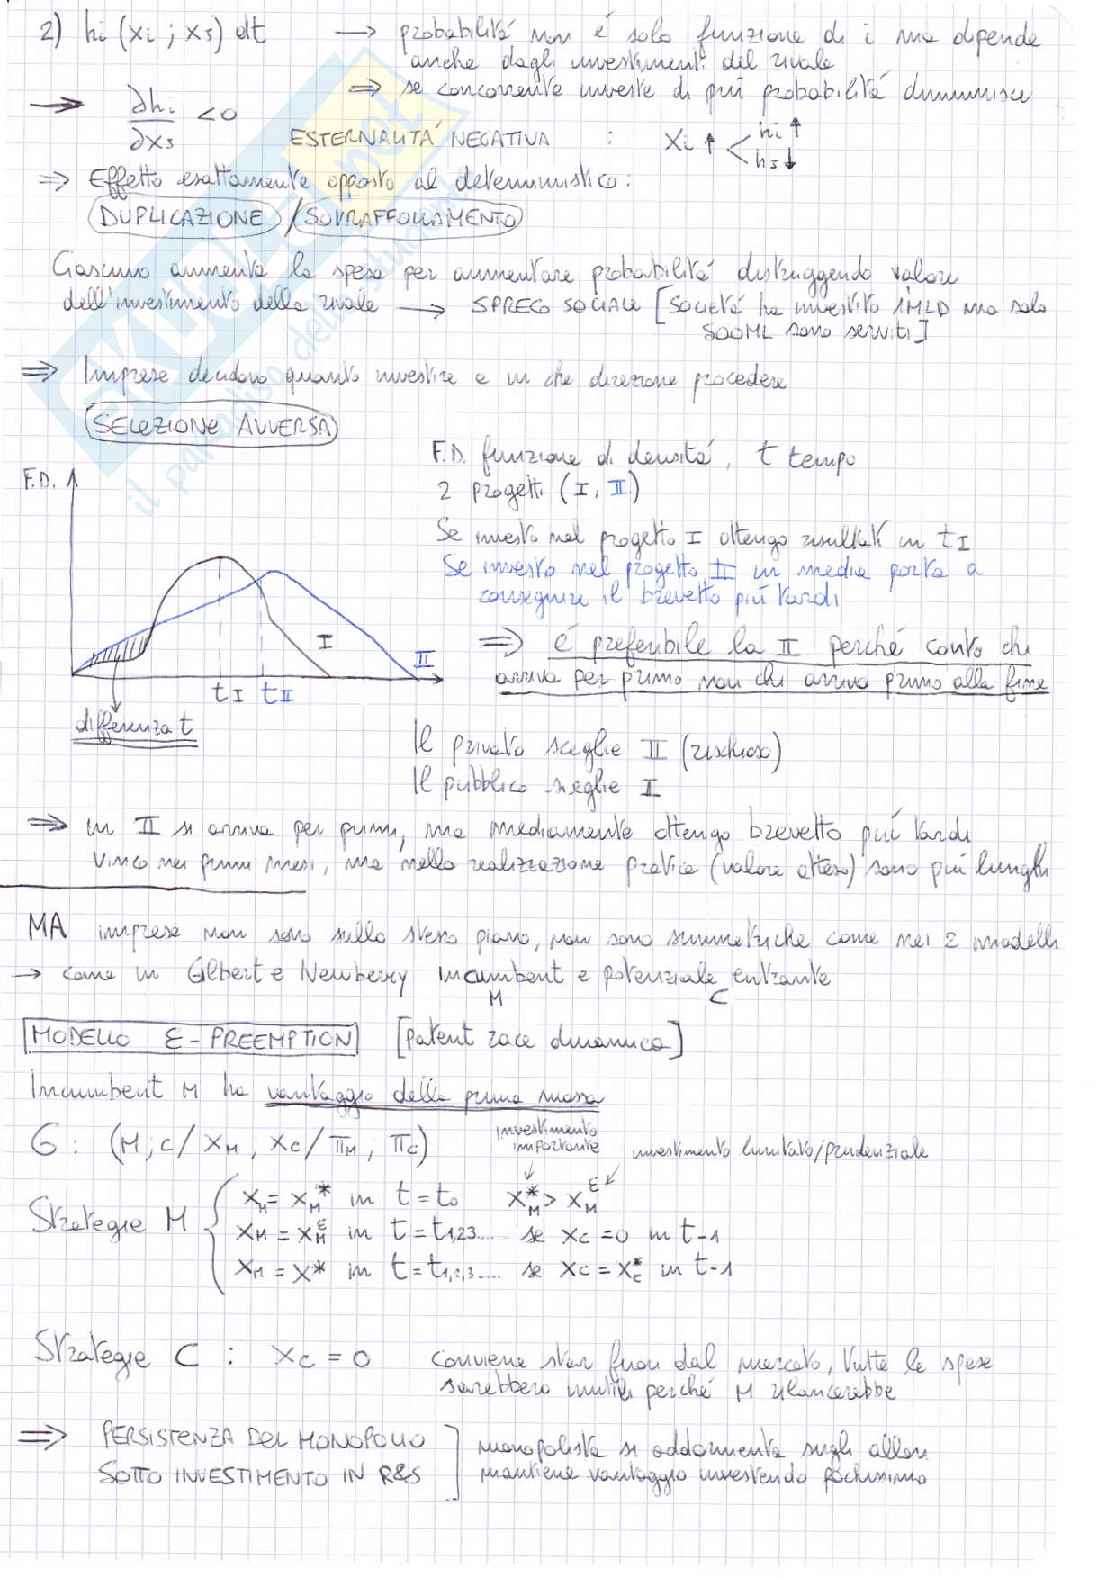 2) hi (xi ; xs) dt → probabilità non è solo funzione di i ma dipende
anche dagli investimenti del rivale
⇒ se concorrente investe di più probabilità diminuisce
→ ∂hi/∂xs <0
ESTERNALITÀ NEGATIVA : xi ↑ < hi ↑ hs ↓
⇒ Effetto esattamente opposto al deterministico:
DUPLICAZIONE / SOVRAFFOLLAMENTO
Ciascuno aumenta la spesa per aumentare probabilità distruggendo valore
dell'investimento della rivale → SPRECO SOCIALE [Società ha investito 1MLD ma solo
500ML sono serviti]
⇒ Imprese decidono quanto investire e in che direzione procedere
SELEZIONE AVVERSA
F.D. funzione di densità, t tempo
2 progetti (I, II)
Se investo nel progetto I ottengo risultati in tI
Se investo nel progetto II in media porta a
conseguire il brevetto più tardi
⇒ è preferibile la II perché conta chi
arriva per primo non chi arriva primo alla fine
F.D.
I
II
tI tII
differenza t
Il privato sceglie II (rischioso)
Il pubblico sceglie I
⇒ in II si arriva per primi, ma mediamente ottengo brevetto più tardi
Vinco nei primi mesi, ma nella realizzazione pratica (valore atteso) sono più lunghi
MA imprese non sono sullo stesso piano, non sono simmetriche come nei 2 modelli
→ come in Gilbert e Newberry incumbent e potenziale entrante
M C
MODELLO ε-PREEMPTION [patent race dinamica]
Incumbent M ha vantaggio della prima mossa
G : (M, C / xM, xC / πM, πC)
investimento
importante
investimento limitato/prudenziale
Strategie M { xM = xM* in t = t0 xM* > xMε
xM = xMε in t = t1,2,3.... se xC = 0 in t-1
xM = x* in t = t1,2,3.... se xC = xC* in t-1
Strategie C : xC = 0 conviene star fuori dal mercato, tutte le spese
sarebbero inutili perché M rilancerebbe
⇒ PERSISTENZA DEL MONOPOLIO
SOTTO INVESTIMENTO IN R&S
monopolista si addormenta sugli allori
mantiene vantaggio investendo pochissimo
il paradiso dello studente